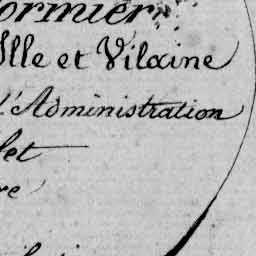 ormier
Ille et Vilaine
d'Administration
let
re